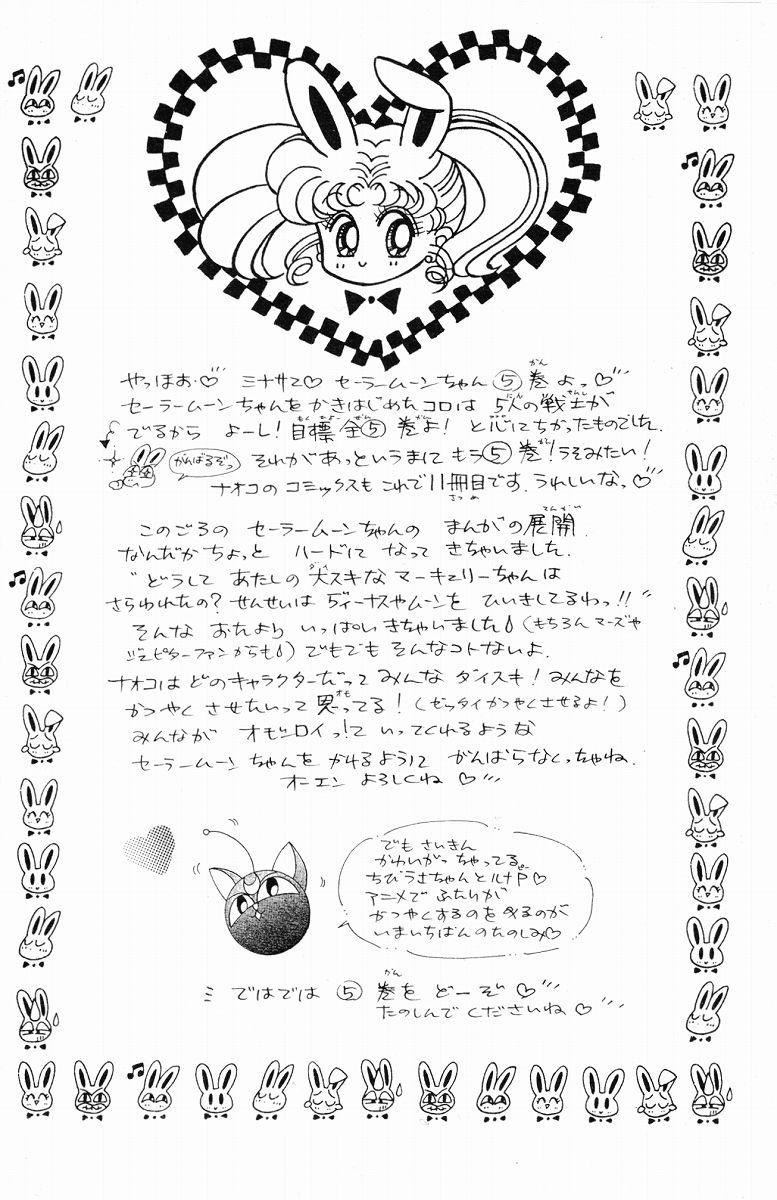 やっほお♡ ミナサマ♡ セーラームーンちゃん⑤巻よっ♡
セーラームーンちゃんをかきはじめたコロは 5人の戦士が
でるから よーし!目標 全⑤巻よ! と心にちかったものでした.
それがあっというまに もう⑤巻!うるみたい!
がんばるぞっ
ナオコのコミックスも これで11冊目です.うれしいなっ♡
このごろの セーラームーンちゃんの まんがの展開.
なんだかちょっと ハードに なって きちゃいました.
"どうして あたしの 大スキな マーキュリーちゃんは
さらわれたの? せんせいは ヴィーナスやムーンを ひいきしてるわっ!!"
そんな おたより いっぱいきちゃいました(もちろん マーズや
ジュピターファンからも) でもでも そんなコトないよ.
ナオコは どのキャラクターだって みんな ダイスキ! みんなを
かつやく させたいって 思ってる! (ゼッタイかつやくさせるよ!)
みんなが オモシロイっ!て いってくれるような
セーラームーン ちゃんを かけるように がんばらなくっちゃね.
オーエン よろしくね ♡
でも さいきん
かわいがっ ちゃってる.
ちびうさちゃんとルナP♡
アニメで ふたりが
かつやくするのを みるのが
いまいちばんの たのしみ♡
ではでは ⑤巻を どーぞ♡
たのしんで くださいね ♡